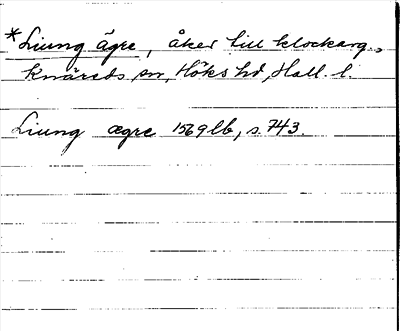 *Liung ägre, åker till klockarg.,
Knäreds sn, Höks hd, Hall. l.
Liung ægre 1569 lb, s. 743.